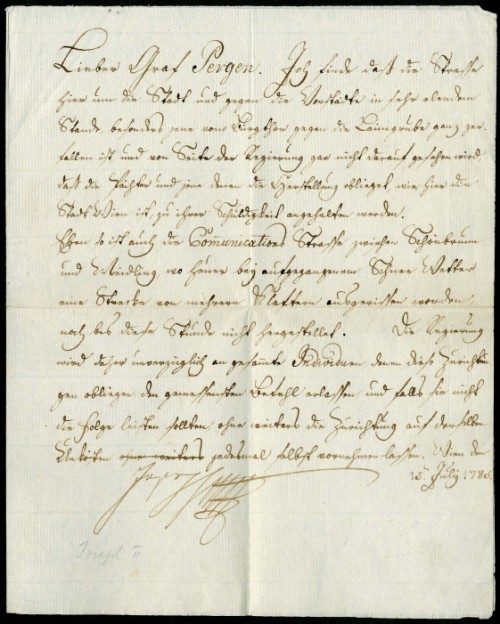 Lieber Graf Pergen. Ich finde daß die Strasse
hier um die Stadt und gegen die Vorstädte in sehr elendem
Stande, besonders jene vom Burgthor gegen die Laimgrube ganz zer-
fallen ist und von Seite der Regierung gar nicht darauf gesehen wird
daß die Pächter und jene denen die Herstellung obliegt, wie hier die
Stadt Wien ist, zu ihrer Schuldigkeit angehalten werden.
Eben so ist auch die Comunications Strasse zwischen Schönbrunn
und Meidling wo heuer bey aufgegangenem Schnee Wetter
eine Strecke von mehrern Klaftern ausgerissen worden,
noch bis diese Stunde nicht hergestellet. Die Regierung
wird daher unverzüglich an gesammte Individuen denen diese Zurichtun
gen obliegen den gemessensten Befehl erlassen, und falls sie nicht
die Folge leisten sollten, ohne weiters die Zurichtung auf derselben
Unkösten ohne weiters jedesmal selbst vornehmen lassen. Wien den
July 178
Joseph
Joseph II